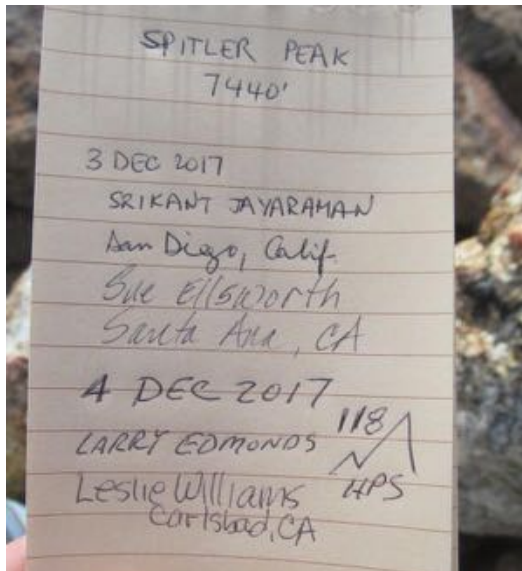 SPITLER PEAK
7440'
3 DEC 2017
SRIKANT JAYARAMAN
San Diego, Calif.
Sue Ellsworth
Santa Ana, CA
4 DEC 2017
LARRY EDMONDS 118
Leslie Williams HPS
Carlsbad, CA